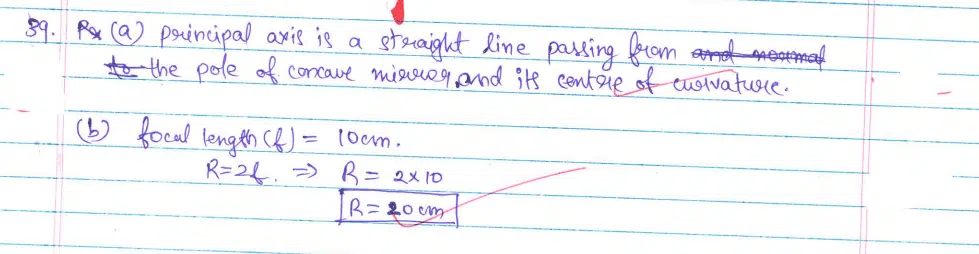 39. (a) principal axis is a straight line passing from and normal
to the pole of concave mirror, and its centre of curvature.
(b) focal length (f) = 10cm.
R=2f. ⇒ R = 2×10
R = 20 cm